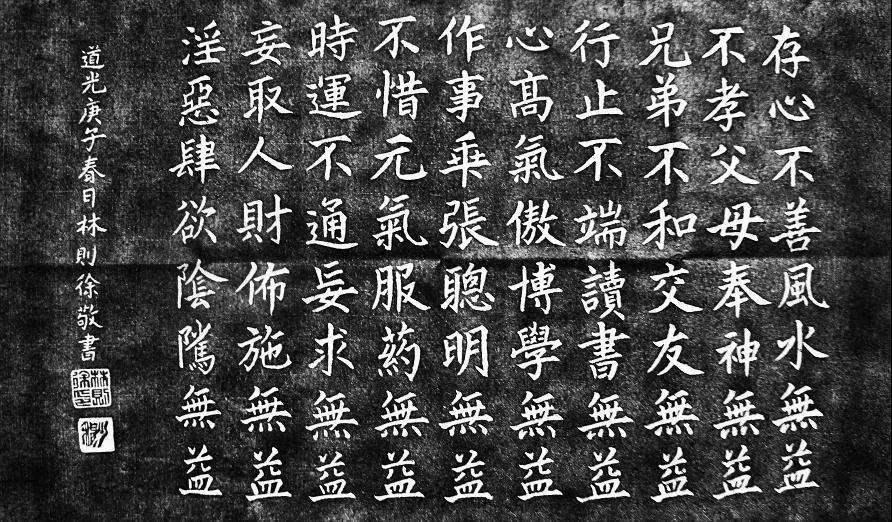 存心不善風水無益
不孝父母奉神無益
兄弟不和交友無益
行止不端讀書無益
心髙氣傲博學無益
作事乖張聰明無益
不惜元氣服葯無益
時運不通妄求無益
妄取人財佈施無益
淫惡肆欲陰騭無益
道光庚午春日林則徐敬書